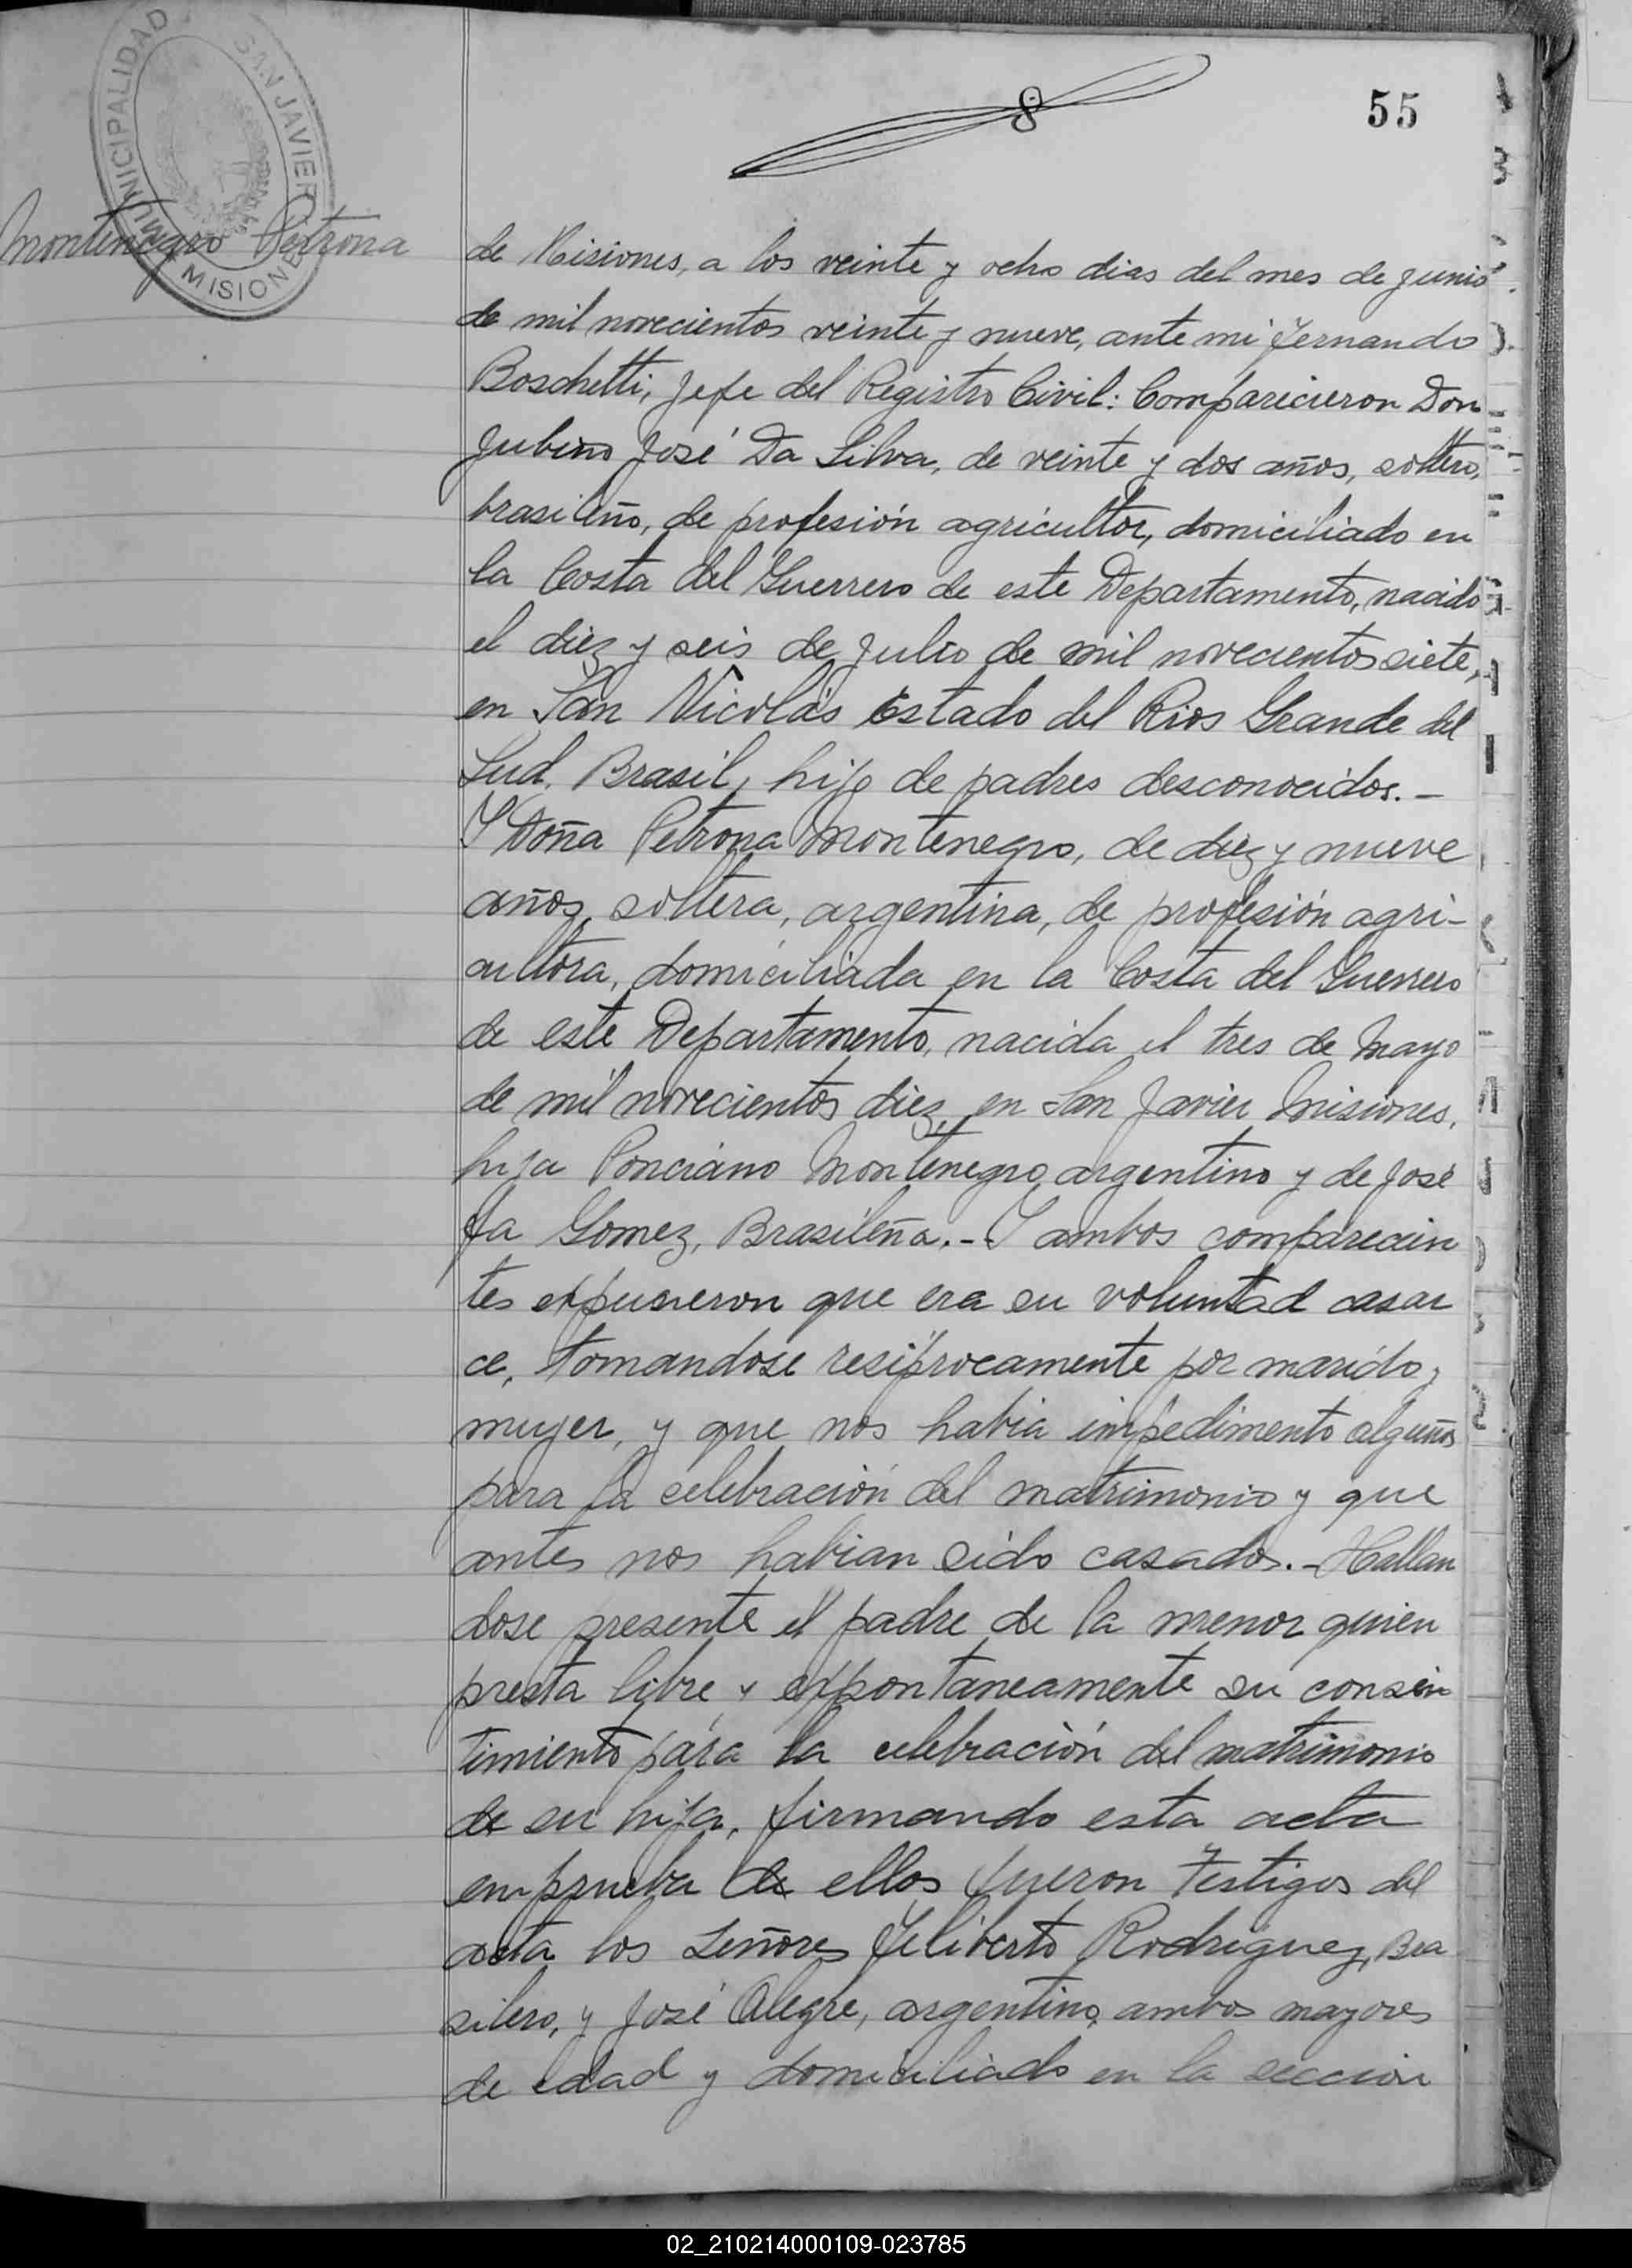 MUNICIPALIDAD
SAN JAVIER
MISIONES
8
55
Montenegro Petrona
de Misiones, a los veinte y ocho dias del mes de junio
de mil novecientos veinte y nueve, ante mi Fernando
Boschetti, Jefe del Registro Civil: Comparicieron Don
José Da Silva, de veinte y dos años, soltero,
brasileño, de profesión agricultor, domiciliado en
la Costa del Guerrero de este Departamento, nacido
el diez y seis de Julio de mil novecientos siete,
en San Nicolás Estado del Rios Grande del
Sud. Brasil, hijo de padres desconocidos.-
Y Doña Petrona Montenegro, de diez y nueve
años, soltera, argentina, de profesión agri-
cultora, domiciliada en la Costa del Guerrero
de este Departamento, nacida el tres de Mayo
de mil novecientos diez, en San Javier Misiones,
hija Ponciano Montenegro argentino y de José
fa Gomez, Brasileña.- Y ambos comparecien
tes expusieron que era su voluntad casar
ce, tomandose resiprocamente por marido y
mujer, y que nos habia impedimento alguno
para la celebración del matrimonio y que
antes nos habian sido casados.- Hallan
dose presente el padre de la menor quien
presta libre y expontaneamente su consin
timiento para la celebración del matrimonio
de su hija, firmando esta acta
en prueba de ellos fueron testigos del
acta los Señores Feliberto Rodriguez, Bra
silero, y José Alegre, argentino, ambos mayores
de edad y domiciliado en la sección
02_210214000109-023785